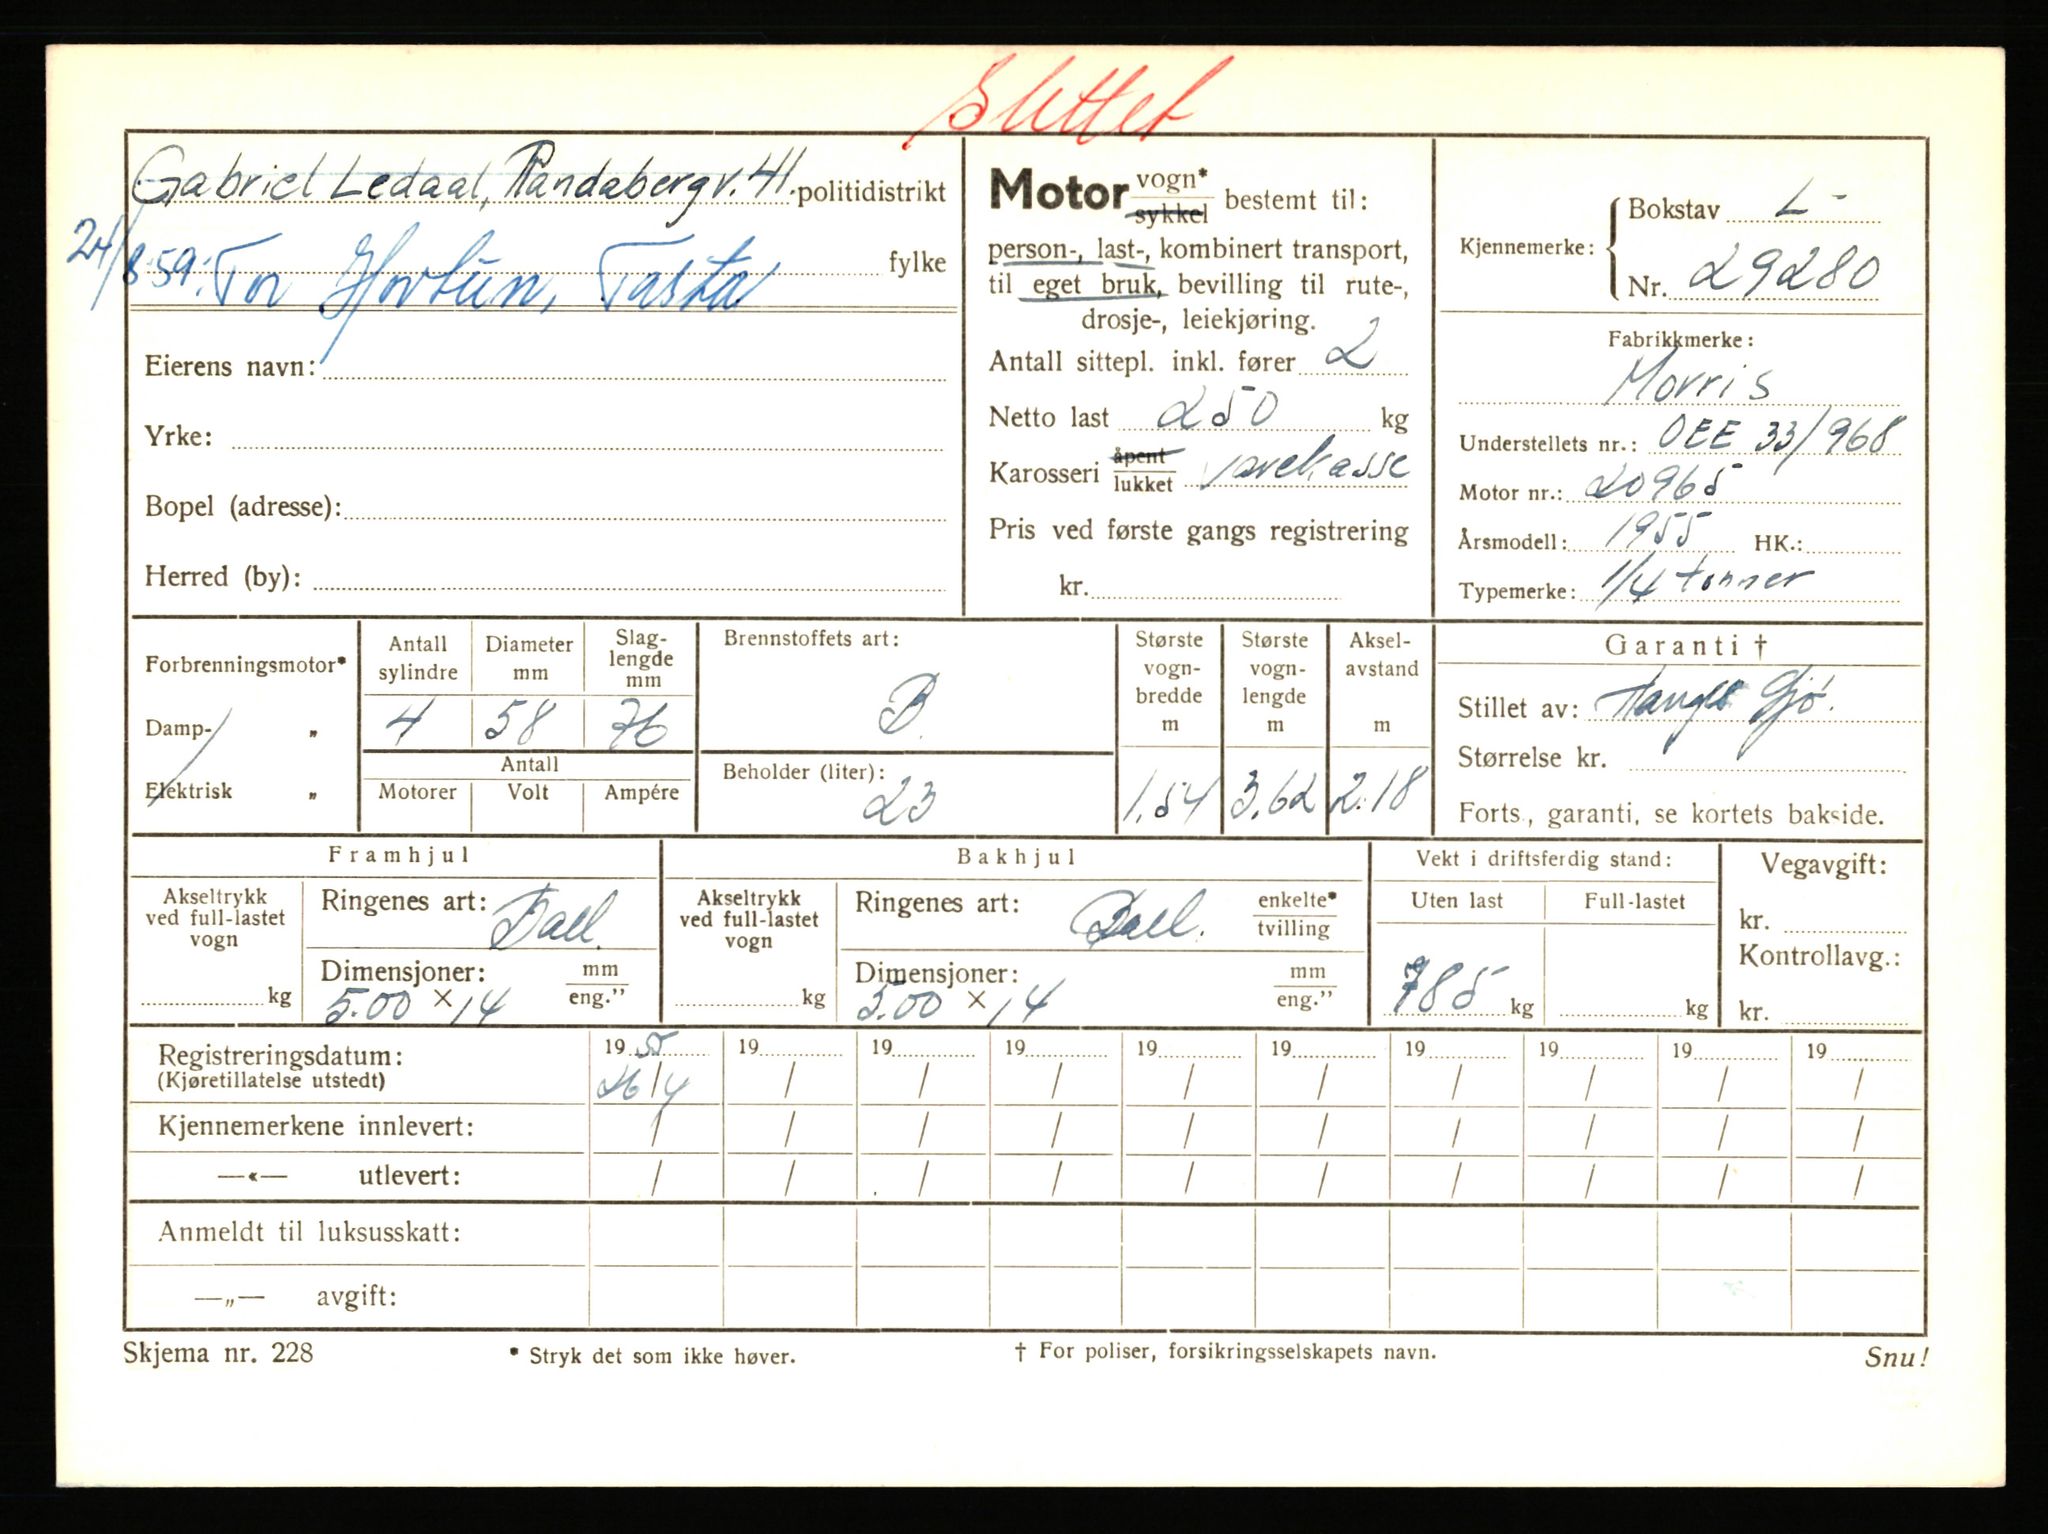 Slettet
Gabriel Ledaal, Randabergv. 41. politidistrikt
24/8 59: Tor Hortun, Tasta fylke
Eierens navn:
Yrke:
Bopel (adresse):
Herred (by):
Motor vogn* sykkel bestemt til:
person-, last-, kombinert transport,
til eget bruk, bevilling til rute-,
drosje-, leiekjøring.
Antall sittepl. inkl. fører 2
Netto last 250 kg
Karosseri åpent lukket varekasse
Pris ved første gangs registrering
kr.
Kjennemerke: Bokstav L-
Nr. 29280
Fabrikkmerke:
Morris
Understellets nr.: OEE 33/968
Motor nr.: 20965
Årsmodell: 1955 HK.:
Typemerke: 1/4 tonner
Forbrenningsmotor*
Damp- „
Elektrisk „
Antall sylindre
4
Diameter mm
58
Slag-lengde mm
76
Antall
Motorer Volt Ampére
Brennstoffets art:
B.
Beholder (liter):
23
Største vogn-bredde m
1.54
Største vogn-lengde m
3.62
Aksel-avstand m
2.18
Garanti †
Stillet av: Gjø.
Størrelse kr.
Forts., garanti, se kortets bakside.
Framhjul
Akseltrykk ved full-lastet vogn
kg
Ringenes art: Ball.
Dimensjoner: mm eng."
5.00 × 14
Bakhjul
Akseltrykk ved full-lastet vogn
kg
Ringenes art: Ball. enkelte* tvilling
Dimensjoner: mm eng."
5.00 × 14
Vekt i driftsferdig stand:
Uten last Full-lastet
785 kg kg
Vegavgift:
kr.
Kontrollavg.:
kr.
Registreringsdatum: 1955 19 19 19 19 19 19 19 19 19
(Kjøretillatelse utstedt) 26/4 / / / / / / / / /
Kjennemerkene innlevert: / / / / / / / / / /
—«— utlevert: / / / / / / / / / /
Anmeldt til luksusskatt:
—„— avgift:
Skjema nr. 228 * Stryk det som ikke høver. † For poliser, forsikringsselskapets navn. Snu!